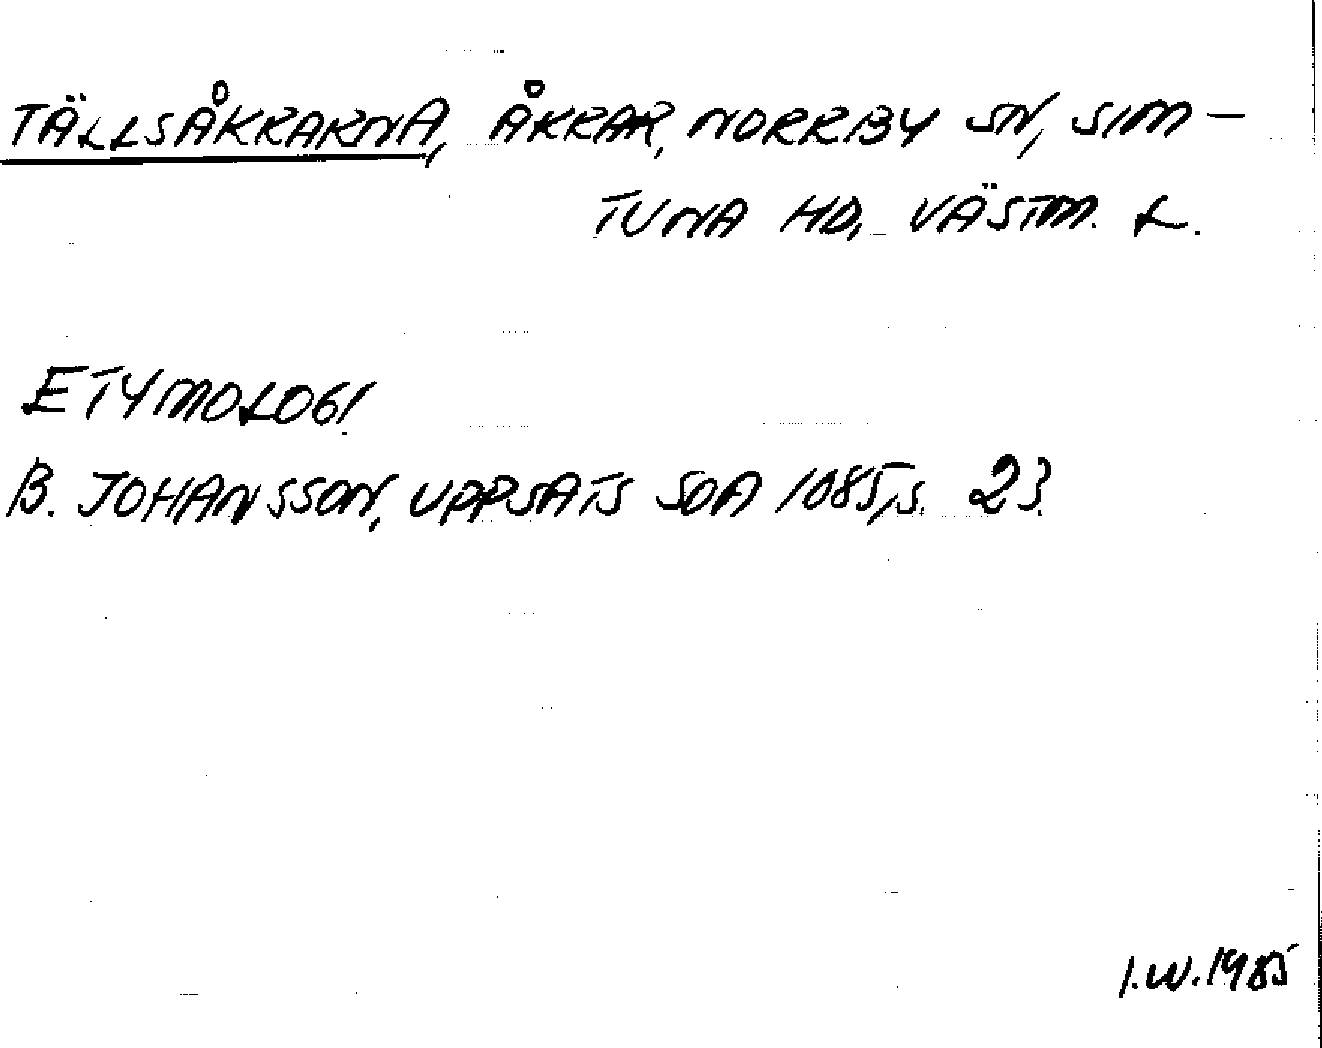 TÄLLSÅKRARNA, ÅKRAR, NORRBY SN, SIM-
TUNA HD, VÄSTM. L.
ETYMOLOGI
B. JOHANSSON, UPPSATS SOA 1085, S. 23.
I.W.1985